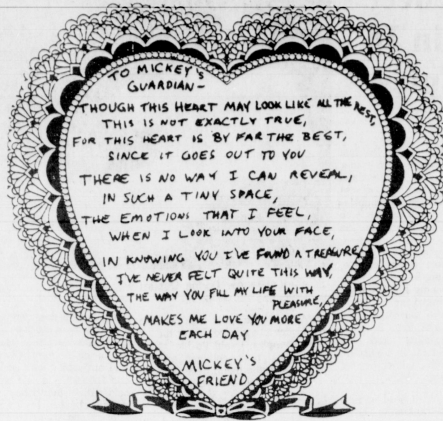 TO MICKEY'S
GUARDIAN-
THOUGH THIS HEART MAY LOOK LIKE ALL THE REST,
THIS IS NOT EXACTLY TRUE,
FOR THIS HEART IS BY FAR THE BEST,
SINCE IT GOES OUT TO YOU
THERE IS NO WAY I CAN REVEAL,
IN SUCH A TINY SPACE,
THE EMOTIONS THAT I FEEL,
WHEN I LOOK INTO YOUR FACE,
IN KNOWING YOU I'VE FOUND A TREASURE
I'VE NEVER FELT QUITE THIS WAY,
THE WAY YOU FILL MY LIFE WITH
PLEASURE,
MAKES ME LOVE YOU MORE
EACH DAY
MICKEY'S
FRIEND